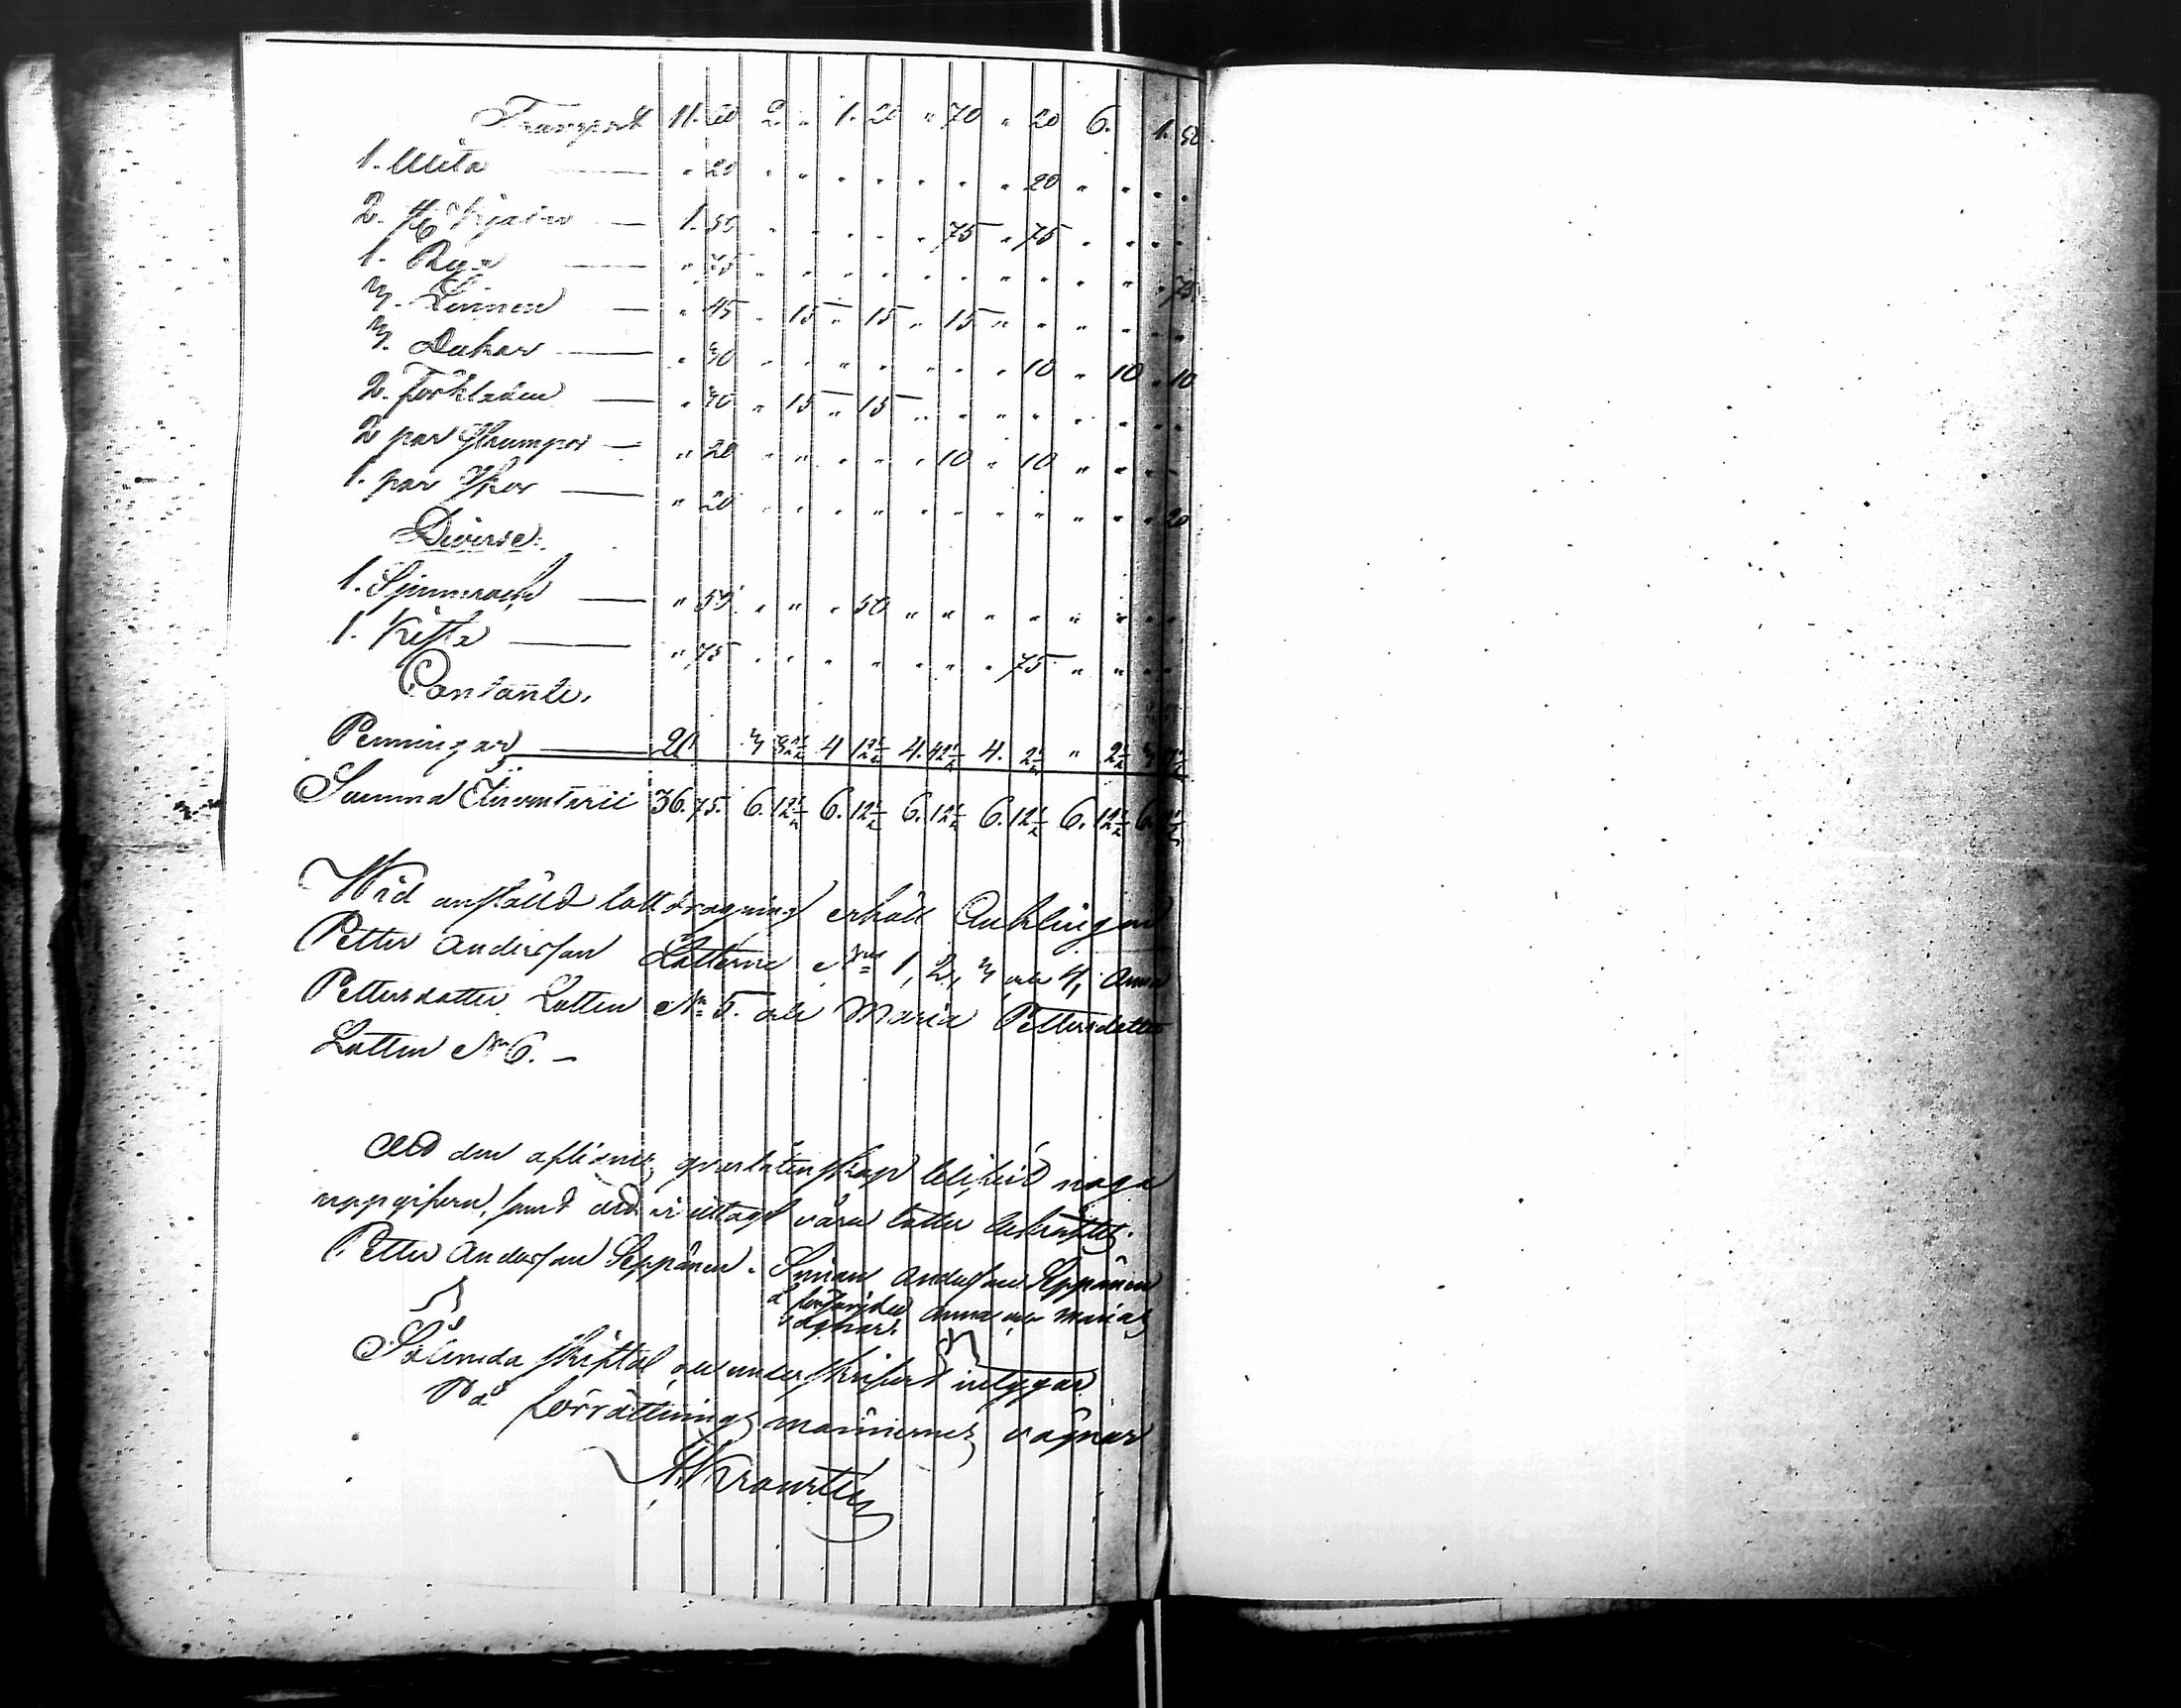 Transport 11. 60 2. " 1. 20 " 70 " 20 6. 1. 50
1. — " 20 " " " " " " " 20 " " " "
2. — 1. 50 " " " " " 75 " 75 " " " "
1. Rya — " 75 " " " " " " " " " " " 75
3. Linnen — " 45 " 15 " 15 " 15 " " " " " "
3. Dukar — " 30 " " " " " " " 10 " 10 " 10
2. förkläden — " 30 " 15 " 15 " " " " " " " "
2 par Strumpor — " 20 " " " " " 10 " 10 " " " "
1. par Skor — " 20 " " " " " " " " " " " 20
Diverse:
1. Spinnrock — " 50 " " " 50 " " " " " " " "
1. Kista — " 75 " " " " " " " 75 " " " "
Contante.
Penningar — 20 3 82½ 4 12½ 4. 42½ 4. 2½ " 2½ 3 7½
Summa Inventarii 36. 75. 6. 12½ 6. 12½ 6. 12½ 6. 12½ 6. 12½ 6. 12½
Wid anställd lottdragning erhöll
Petter Andersson Lotterne N= 1, 2, 3 och 4, Anna
Pettersdotter Lotten N= 5. och Maria Pettersdotter
Lotten N= 6. —
den aflidnes qvarlåtenskap blifvit noga
uppgifven, samt att vi uttagit våra lotter bekräftas.
Petter Andersson Seppänen. Simon Andersson Seppänen
å Anna och Marias
vägnar.
Sålunda skiftadt och underskrifvet intygar
På förrättningsmännernes vägnar